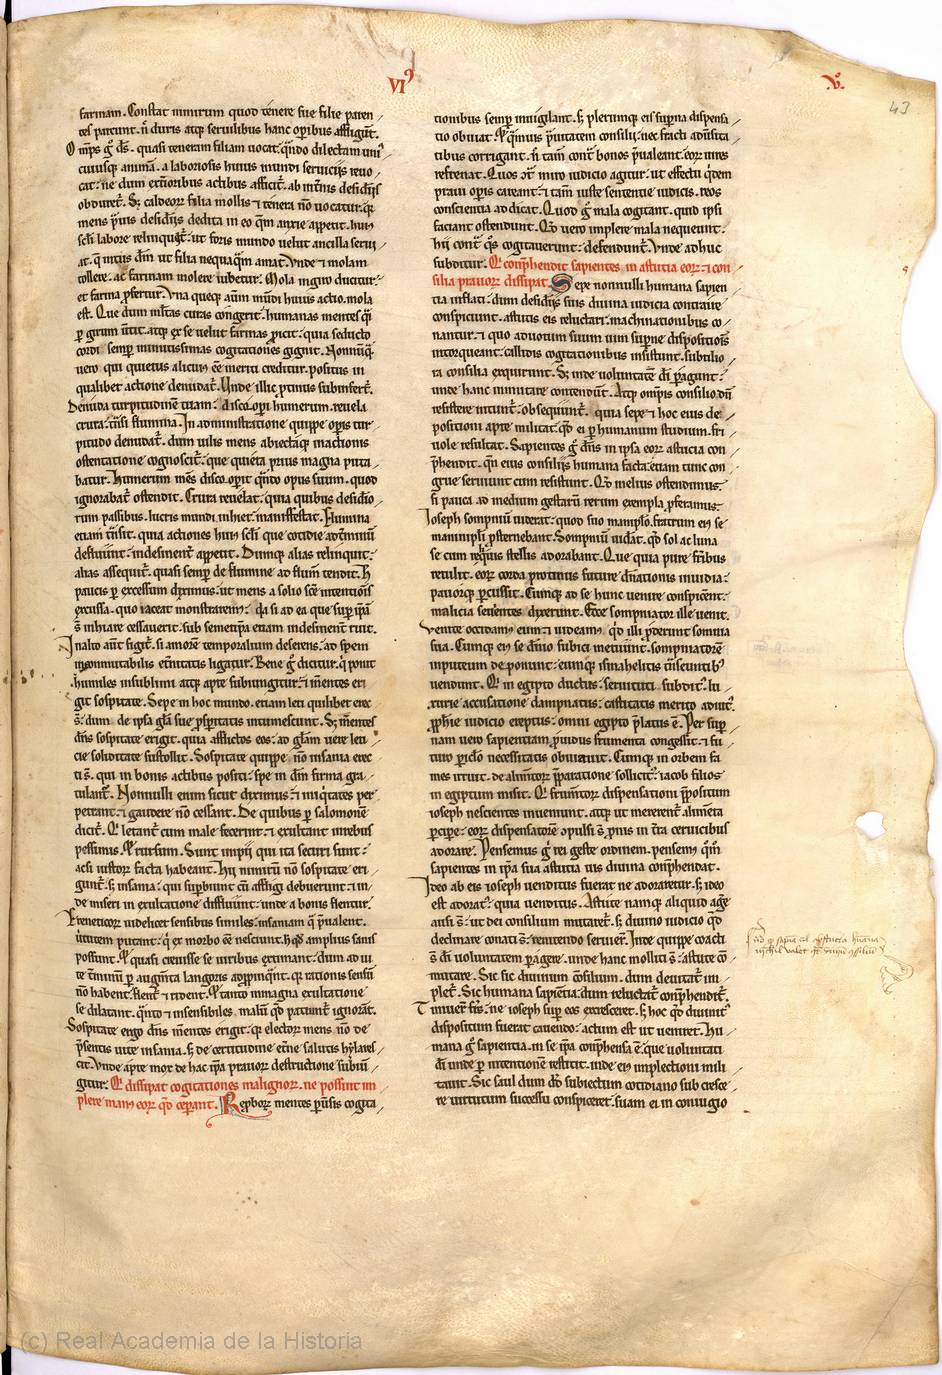 VI9
V.
43
farinam. Constat nimirum quod tenere sue filie paren
tes parcunt. n̄ duris atq; seruilibus hanc operibus affligūt.
quasi teneram filiam uocat. qn̄do dilectam uni9
cuiusq; animā. a laboriosis huius mundi seruicijs reuo
cat. ne dum exterioribus actibus afficit̄. ab int̄nis desiderijs
filia mollis ⁊ tenera nō uocatur. q
mens p̄uis desiderijs dedita in eo q̄m anxie appetit. hui9
scl̄i labore relinquit̄. ut foris mundo uelut ancilla serui
at. q̄ intus dm̄ ut filia nequaq̄m amat. Vnde ⁊ molam
tollere. ac farinam molere iubetur. Mola in giro ducitur.
et farina p̄fertur. Vna queq; aūt mūdi huius actio. mola
est. Que dum ml̄tas curas congerit. humanas mentes q̄si
p girum ūtit. atq; ex se uelut farinas p̄icit. quia seducto
cordi semp minutissimas cogitationes gignit. Nonnūq̄
uero qui quietus alicui9 ē̄e meriti creditur. positus in
qualibet actione denudat̄. Vnde illic p̄tinus subinfert̄.
Denuda turpitudinē tuam. discoop̄i humerum. reuela
crura. t̄nsi flumina. In administratione quippe op̄is tur
pitudo denudat̄. dum uilis mens abiectaq; in actionis
ostentatione cognoscit̄. que quieta prius magna puta
batur. Humerum mēs discoop̄it qn̄to opus suum. quod
ignorabat̄ ostendit. Crura reuelat. quia quibus desiderio
rum passibus. lucris mundi inhiet. manifestat. Flumina
etiam t̄nsit. quia actiones hui9 scl̄i que cotidie ad t̄minū
defluūnt. indesinent̄ appetit. Dumq; alias relinquit.
alias assequit̄. quasi semp de flumine ad flum̄ tendit. H̄
paucis p excessum dixim9. ut mens a solio scē intentiois
excussa. quo iaceat monstraremus. q̄a si ad ea que sup ip̄ā
s̄ inhiare cessauerit. sub semetipsa etiam indesinent̄ ruit.
In alto aūt figit̄. si amorē temporalium deserens. ad spem
incommutabilis et̄nitatis ligatur. Bene g̊ dicitur. q̄ ponit
humiles in sublimi atq; apte subiungitur. ⁊ m̄entes eri
git sospitate. Sepe in hoc mundo. etiam leti quilibet erec
ti s̄. dum de ipsa gl̄a sue p̄sp̄itatis intumescunt. S; m̄entes
dn̄s sospitate erigit. quia afflictos eos. ad gl̄am uere leti
cie soliditate sustollit. Sospitate quippe nō insania erec
ti s̄. qui in bonis actibus positi. spe in dm̄ firma gra
tulant̄. Nonnulli enim sicut dixim9. ⁊ iniq̄tates per
petrant. ⁊ gaudere nō cessant. De quibus p salomonē
dicit̄. Q̄ letant̄ cum male fecerint. ⁊ exultant in rebus
pessimis. Et rursum. Sunt impij qui ita securi sunt.
acsi iustor̄ facta habeant. Hij nimirū nō sospitate eri
gunt̄. s; insania. qui sup̄biunt cū affligi debuerunt. ⁊ in
de miseri in exultatione diffluūt. unde a bonis flentur.
Freneticor̄ uidelicet sensibus similes. insaniam q̄ p̄ualent.
uirtutem putant. q̄ ex morbo ē̄e nesciunt.
possunt. Et quasi creuisse se uiribus extimant. dum ad ui
te t̄minū p augm̄ta langoris appropinq̄nt. q̄ rationis sensū
nō habent. flent̄ ⁊ rident. Et tanto in magna exultatione
se dilatant. qn̄to ⁊ insensibiles malū qd̄ patiunt̄ ignorāt.
Sospitate ergo dn̄s m̄entes erigit. q̄ elector̄ mens nō de
p̄sentis uite insania. s; de certitudine et̄ne salutis hylares
cit. Vnde apte mox de hac ip̄a prauor̄ destructione subiū
gitur. Q̄ dissipat cogitationes malignor̄. ne possint im
plere man9 eor̄ qd̄ ceperant. Reprobor̄ mentes p̄uersis cogita
tionibus semp inuigilant. s; plerumq; eis sup̄na dispensa
tio obuiat. Et q̄muis p̄uitatem consilij. nec fracti adūsita
tibus corrigant. n̄ tam̄ cont̄ bonos p̄ualeant. eor̄ uires
refrenat. Quos miro iudicio agitur. ut effectu q̄dem
praui op̄is careant. ⁊ tam̄ iuste sententie iudicis. reos
conscientia addicat. Quod g̊ mala cogitant. quid ipsi
faciant ostendunt. Qd̄ uero implere mala nequeunt.
hij cont̄ q̊s cogitauerunt. defendunt̄. Vnde adhuc
subditur. Q̄ conp̄hendit sapientes in astutia eor̄. ⁊ con
silia prauor̄ dissipat. Sepe nonnulli humana sapien
tia inflati. dum desiderijs suis diuina iudicia contraire
conspiciunt. astutis eis reluctari machinationibus co
nantur. ⁊ quo ad uotum suum uim sup̄ne dispositiois
intorqueant. callidis cogitationibus insistunt. subtilio
ra consilia exquirunt. S; inde uoluntatē dī p̄agunt.
unde hanc inmutare contendūt. Atq; omp̄is consilio dū
resistere nitunt̄. obsequunt̄. quia sepe ⁊ hoc eius dis
positioni apte militat. qd̄ ei p humanum studium. fri
uole resultat. Sapientes g̊ dn̄s in ipsa eor̄ astutia con
p̄hendit. qn̄ eius consilijs humana facta. etiam tunc con
grue seruiunt cum resistunt. Qd̄ melius ostendimus.
si pauca ad medium gestarū rerum exempla p̄feramus.
Ioseph sompniū uiderat. quod suo manip̄lo. fratrum ei9 se
manip̄li p̄sternebant. Sompniū uidat̄. qd̄ sol ac luna
se cum reliquis stellis adorabant. Que quia pure fr̄ibus
retulit. eor̄ corda protinus future dn̄ationis inuidia.
pauorq; p̄cussit. Cumq; ad se hunc uenire conspicerent.
malicia seuientes dixerunt. Ecce sompniator ille uenit.
Venite occidam9 eum. ⁊ uideam9 qd̄ illi p̄derunt somnia
sua. Cumq; ei9 se dn̄io subici metuūnt. sompniatorē
in puteum deponunt. eumq; ismahelitis t̄nseuntib9
uendunt. Q̄ in egipto ductus. seruituti subdit9. lu
xurie accusatione dampnatus. castitatis merito adiut9.
pp̄hie iudicio ereptus. omni egipto p̄latus ē. Per sup̄
nam uero sapientiam p̄uidus frumenta congessit. ⁊ fu
turo piclo necessitatis obuiauit. Cumq; in orbem fa
mes irruit. de alim̄tor̄ p̄paratione sollicit9. iacob filios
in egiptum misit. Q̄ frum̄tor̄ dispensationi p̄positum
ioseph nescientes inuenūnt. atq; ut mererent̄ alim̄ta
p̄cipe. eor̄ dispensatorē opulsi s̄ p̄nis in t̄ra ceruicibus
adorare. Pensemus g̊ rei geste ordinem. pensem9 q̄m̄
sapientes in ip̄a sua astutia uis diuina conp̄hendat.
Ideo ab eis ioseph uenditus fuerat ne adoraretur. s; ideo
est adorat9. quia uenditus. Astute namq; aliquid age
ausi s̄. ut dei consilium mutaret̄. s; diuino iudicio qd̄
declinare conati s̄. renitendo seruiert̄. Inde quippe coacti
s̄ dī uoluntatem p̄agere. unde hanc moliti s̄. astute cō
mutare. Sic sic diuinum cōsilium. dum deuitat̄. im
plet̄. Sic humana sapientia. dum reluctat̄ conp̄hendit̄.
Timuert̄ fr̄s. ne ioseph sup eos excresceret. s; hoc qd̄ diuinit9
dispositum fuerat cauendo. actum est ut ueniret. Hu
mana g̊ sapientia. in se ip̄a conp̄hensa ē. que uoluntati
dī unde p intentionē restitit. inde ei9 impletioni mili
tauit. Sic saul dum dd̄ subiectum cotidiano sub cresce
re uirtutum successu conspiceret. suam ei in coniugio
(c) Real Academia de la Historia